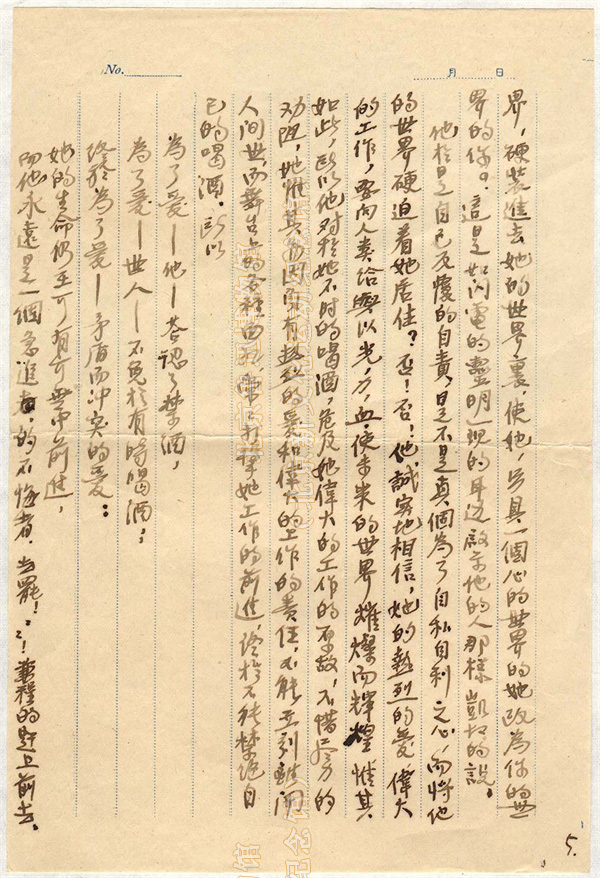 No.
月 日
界，硬装進去她的世界裏，使她，另具一個心的世界的她改為你的世
界的你？。這是如閃電的靈明一現的耳邊啟示他的人那樣凱切的說。
他於是自己反覆的自責，是不是真個為了自私自利之心，而將他
的世界硬迫着她居住？否！否！他誠实地相信，她的熱烈的愛，偉大
的工作，要向人类给與以光，力，血，使未来的世界燦爛而輝煌，惟其
如此，所以他对於她不时的喝酒，危及她偉大的工作的原故，不惜尽力的
劝阻，她惟其
有熱烈的愛和偉大的工作的責任，不能不引離開
人间世，而舞台上的各種
她工作的前進，终於不能禁绝自
己的喝酒。所以
為了愛—他—答認了禁酒，
為了愛—世人—不免於有時喝酒；
终於為了愛—矛盾而冲突的愛：
她的生命仍在可有可無中前進，
而他永遠是一個急進者，的不悔者，去罷！
兼程的趕上前去。
5.